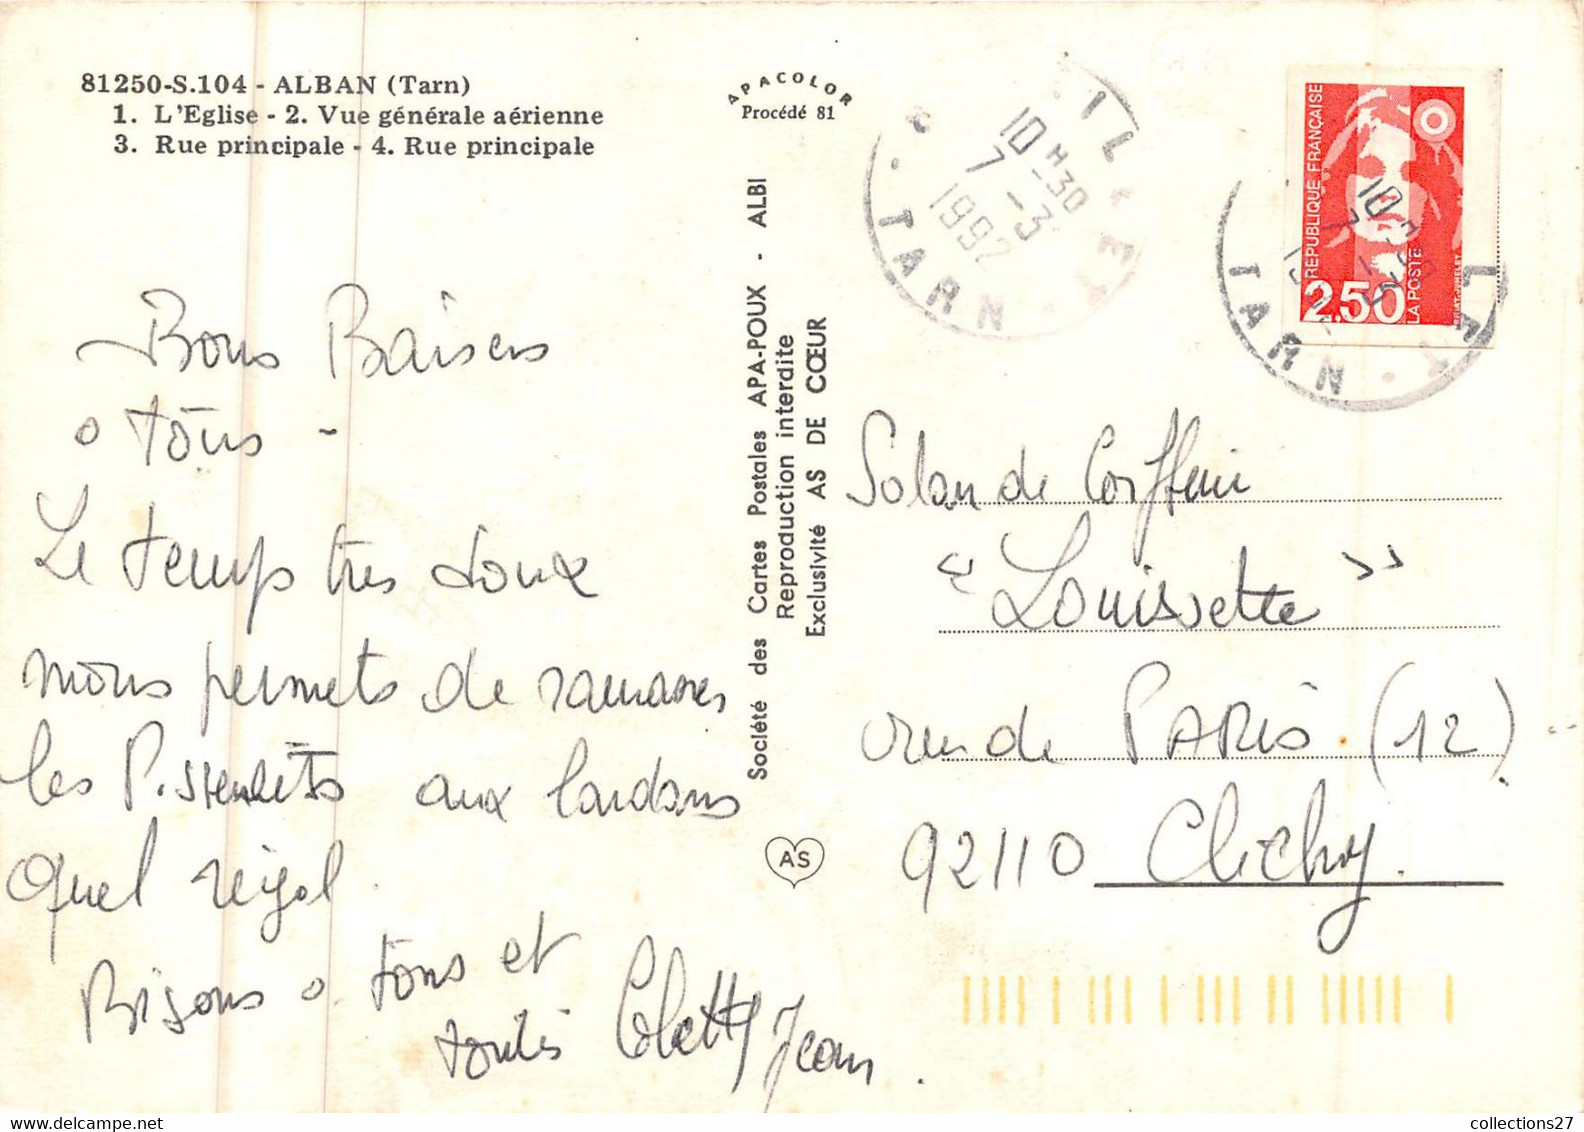 81250-S.104 - ALBAN (Tarn)
1. L'Eglise - 2. Vue générale aérienne
3. Rue principale - 4. Rue principale
APACOLOR
Procédé 81
Société des Cartes Postales APA-POUX - ALBI
Reproduction interdite
Exclusivité AS DE CŒUR
AS
10 H 30
7 - 3
1992
TARN
RÉPUBLIQUE FRANÇAISE
2,50
LA POSTE
10
7
TARN
Bons Baisers
a tous -
Le temps tres doux
nous permets de ramasses
les Pissenlits aux lardons
Quel régal.
Bisous a tous et
toutes Colette Jean.
Salon de Coiffure
"Louisette"
rue de PARIS. (12)
92110 Clichy.
collections27